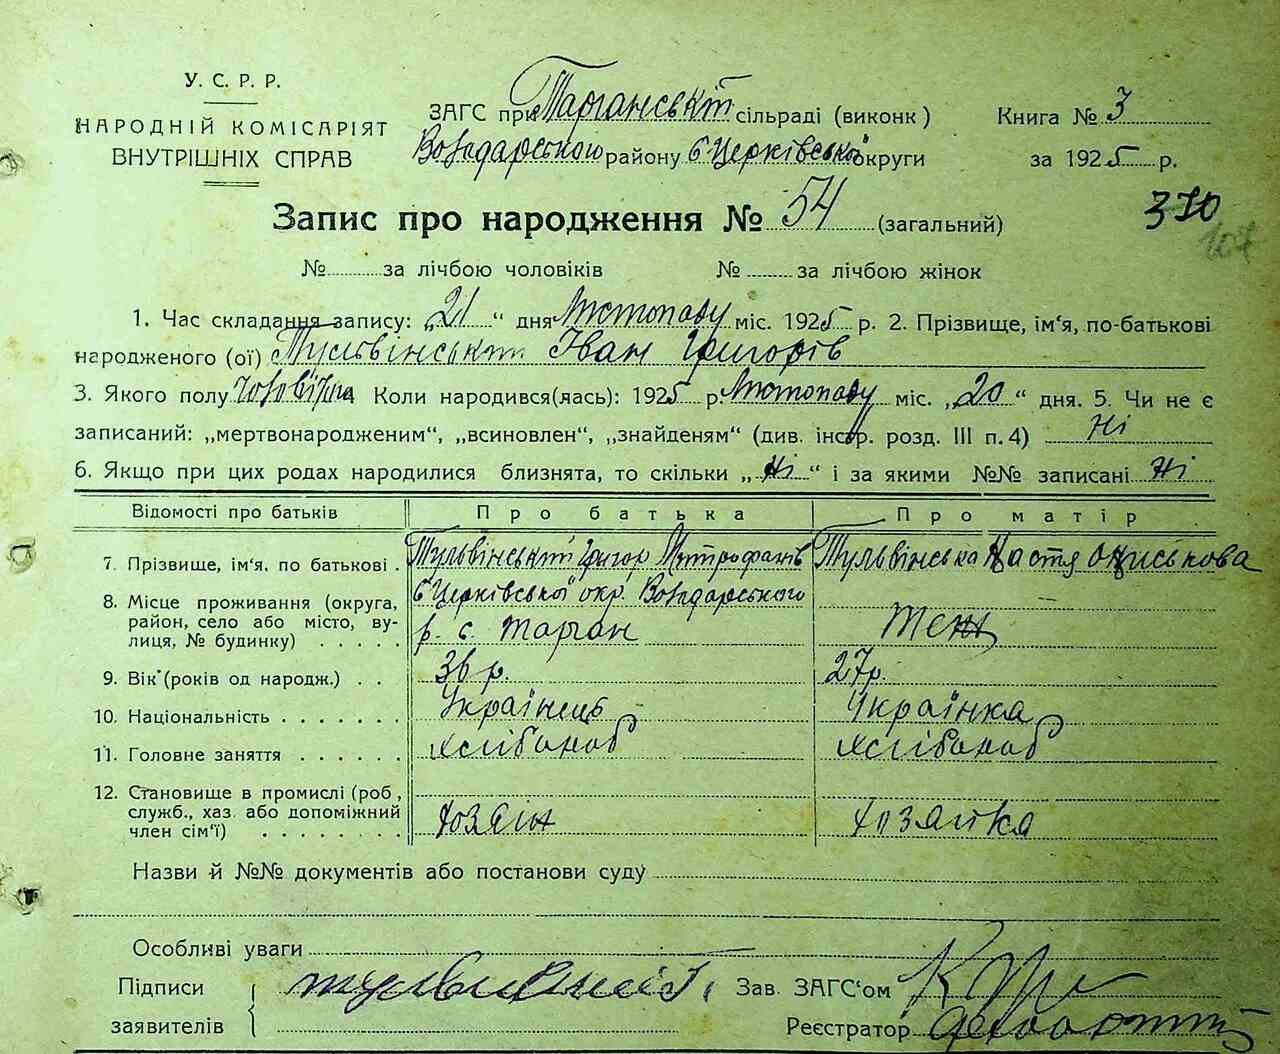 У. С. Р. Р.
НАРОДНІЙ КОМІСАРІЯТ
ВНУТРІШНІХ СПРАВ
ЗАГС при Тарганській сільраді (виконк)
Володарського району Б-Церківської округи
Книга № 3
за 1925 р.
Запис про народження № 54 (загальний)
370
107
№ за лічбою чоловіків № за лічбою жінок
1. Час складання запису: „21“ дня Листопаду міс. 1925 р. 2. Прізвище, ім'я, по-батькові
народженого (ої) Тульвінський Іван Григорів
3. Якого полу Чоловіча 4 Коли народився(лась): 1925 р. Листопаду міс. „20“ дня. 5. Чи не є
записаний: „мертвонародженим“, „всиновлен“, „знайденям“ (див. інстр. розд. III п. 4) Ні
6. Якщо при цих родах народилися близнята, то скільки „Ні“ і за якими №№ записані Ні
Відомості про батьків Про батька Про матір
7. Прізвище, ім'я, по батькові . Тульвінський Григор Митрофанів Тульвінська Настя
8. Місце проживання (округа, Б-Церківської окр. Володарського
район, село або місто, ву-
лиця, № будинку) . . . . . р. с. Тарган
9. Вік (років од народж.) . . 36 р. 27 р.
10. Національність . . . . . . . Українець Українка
11. Головне заняття . . . . . . Хлібороб Хлібороб
12. Становище в промислі (роб.,
служб., хаз. або допоміжний
член сім'ї) . . . . . . . . Хозяїн Хозяйка
Назви й №№ документів або постанови суду
Особливі уваги
Підписи
заявителів
Зав. ЗАГС'ом
Реєстратор